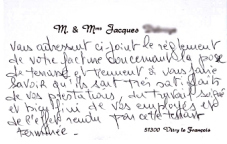 M. & Mme Jacques
Vous adressent ci-joint le règlement
de votre facture concernant la pose
de terrasse et tiennent à vous faire
savoir qu'ils sont très satisfaits
de vos prestations, du travail soigné
et bien fini de vos employés et
de l'effet rendu par cette terrasse
terminée.
51300 Vitry le François